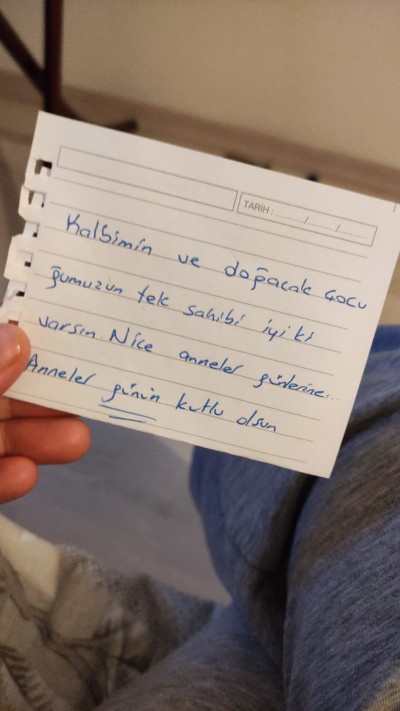 TARİH : ....../....../......
Kalbimin ve doğacak çocu
ğumuzun tek sahibi iyiki
varsın Nice anneler günlerine...
Anneler günün kutlu olsun